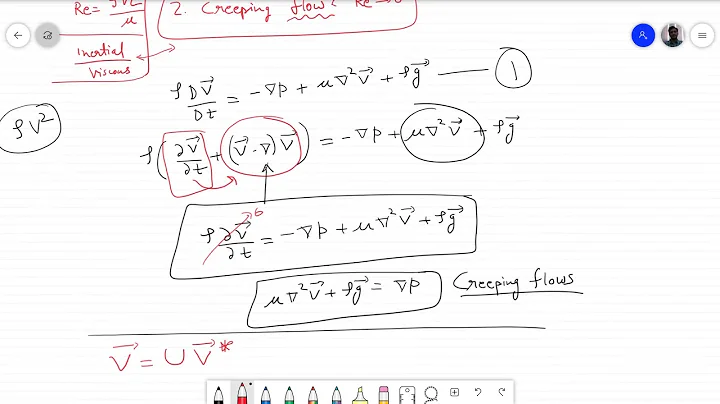 Re = ρVL/μ
2. Creeping flows: Re→0
Inertial/Viscous
ρ DV⃗/Dt = -∇p + μ∇²V⃗ + ρg⃗ — 1
ρV²
ρ(∂V⃗/∂t + (V⃗·∇)V⃗) = -∇p + μ∇²V⃗ + ρg⃗
ρ ∂V⃗/∂t = -∇p + μ∇²V⃗ + ρg⃗
μ∇²V⃗ + ρg⃗ = ∇p Creeping flows
V⃗ = U V⃗*